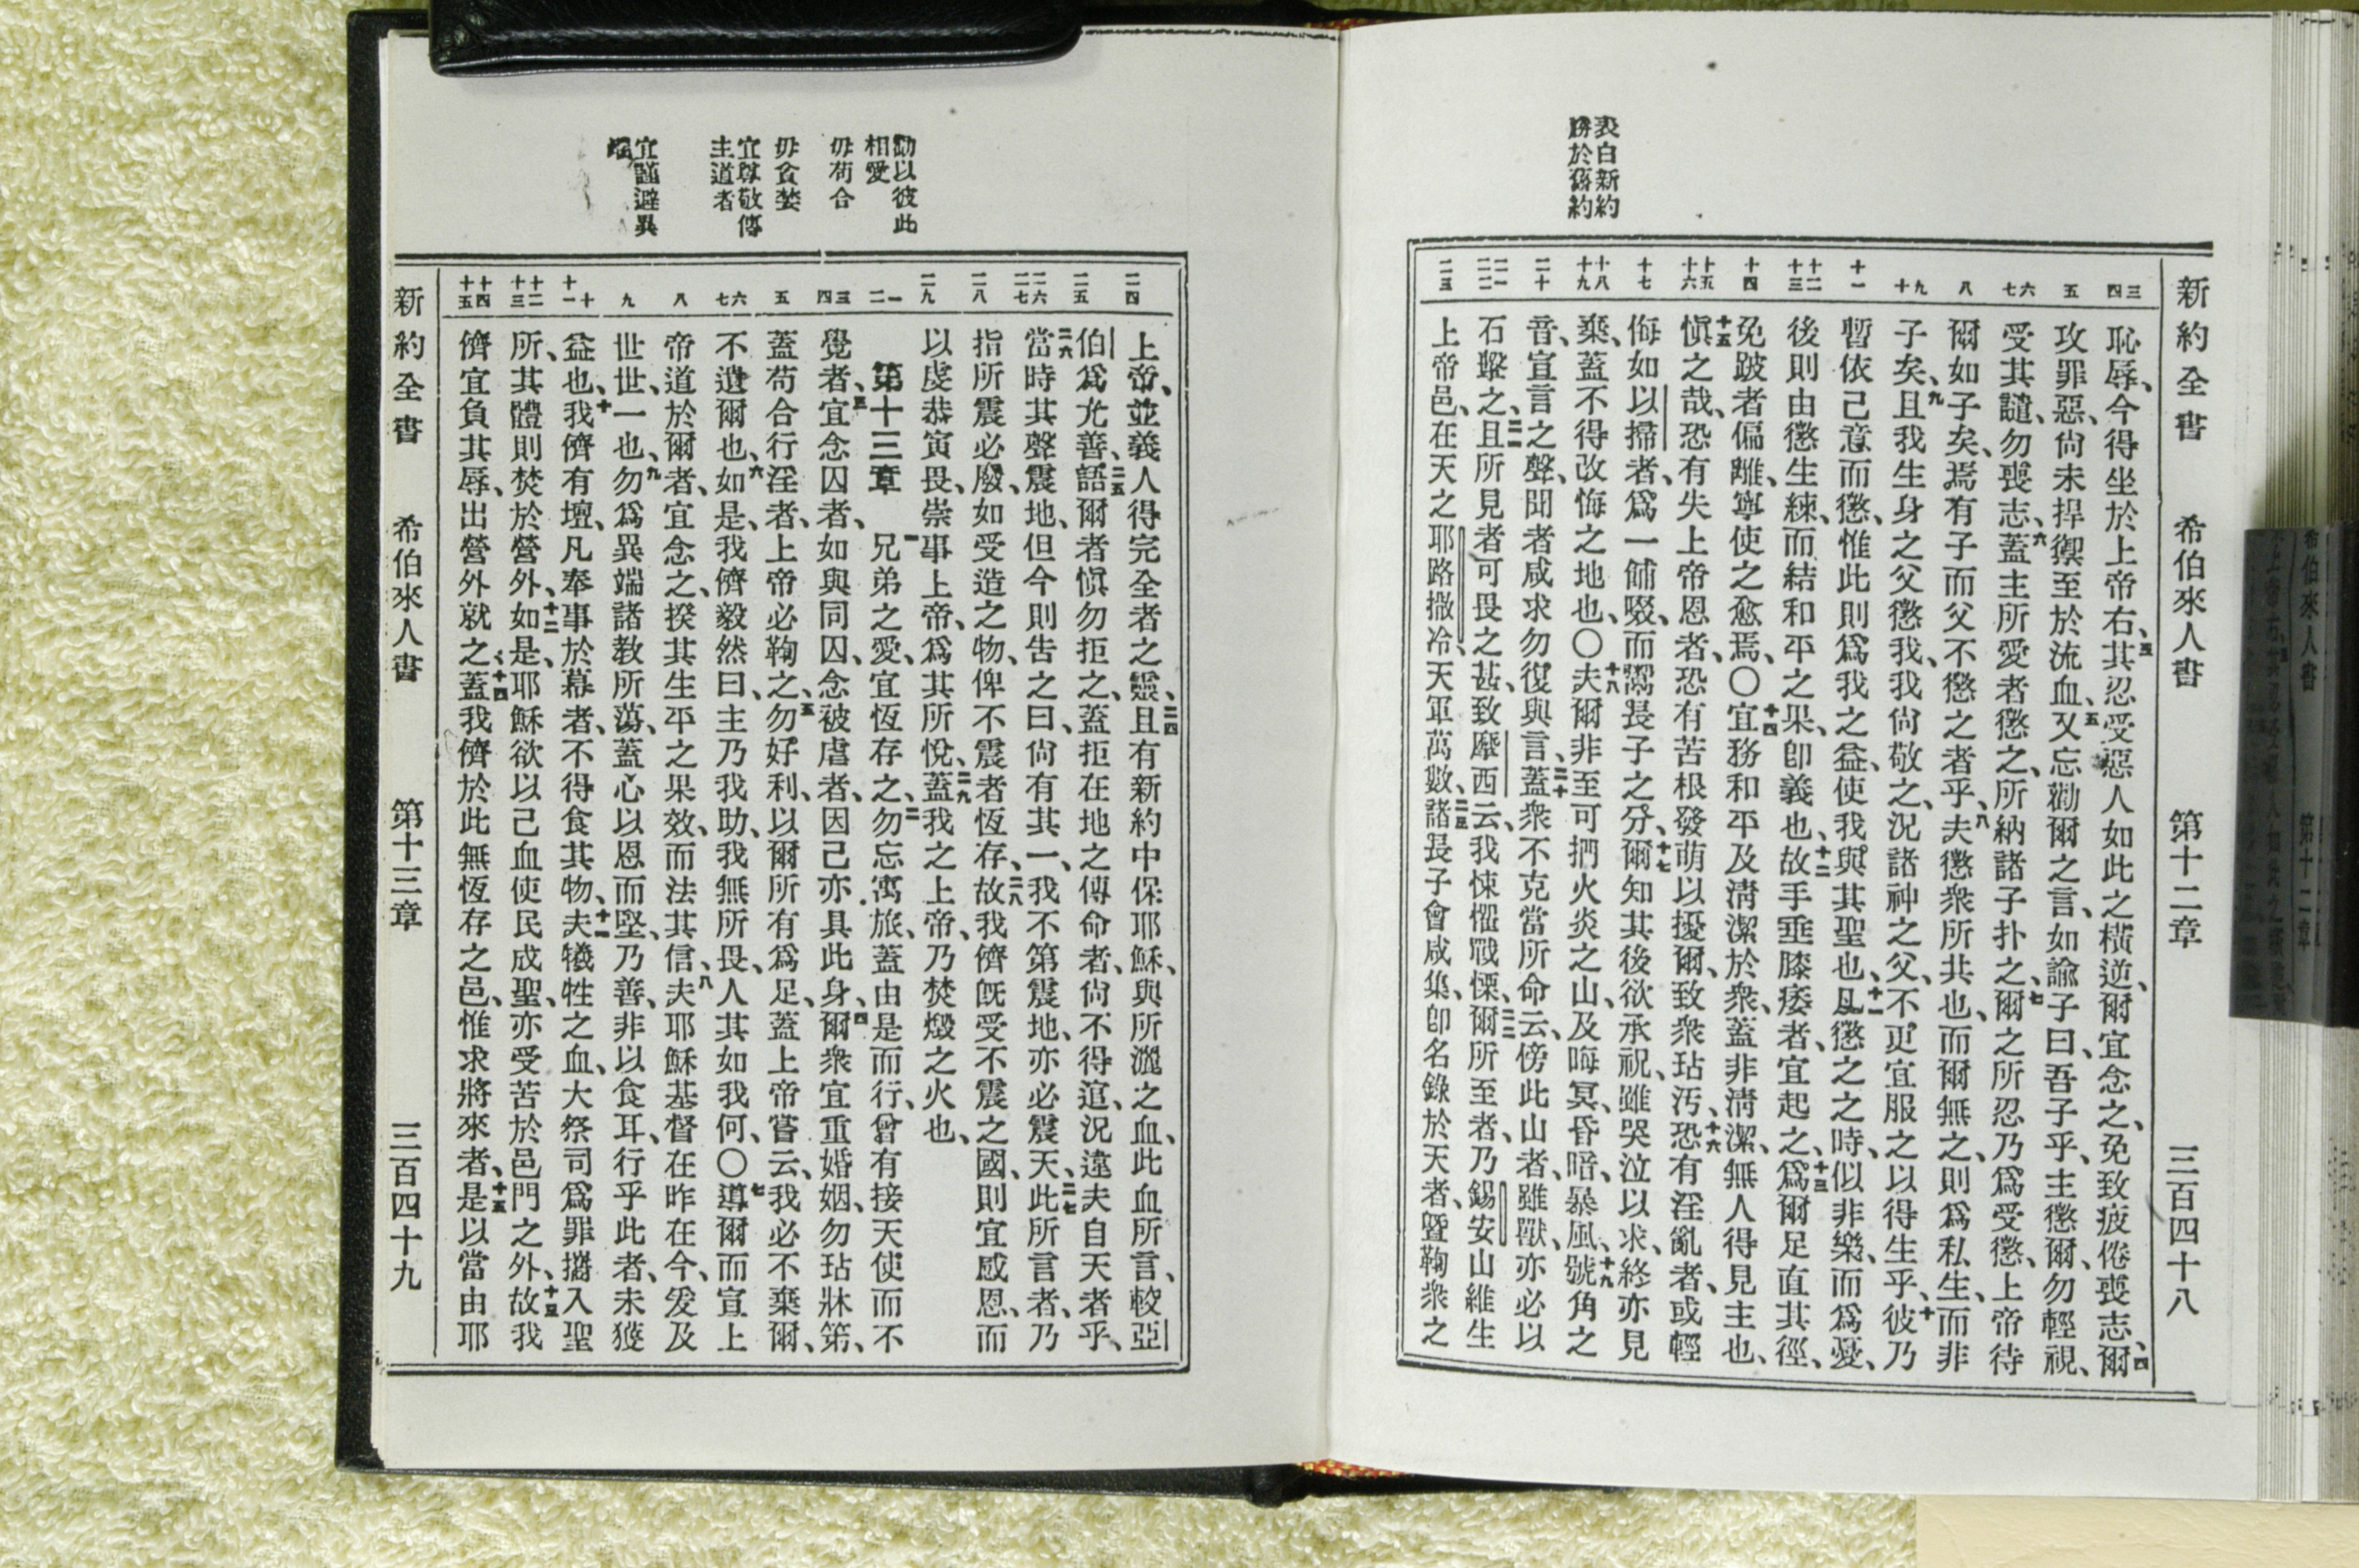 新約全書 希伯來人書 第十二章 三百四十八
三 四
五
六 七
八
九 十
十一
十二 十三
十四
十五 十六
十七
十八 十九
二十
二一 二二
二三
表白新約
勝於舊約
恥辱、今得坐於上帝右、三其忍受惡人如此之橫逆、爾宜念之、免致疲倦喪志、四爾
攻罪惡、尙未捍禦至於流血、五又忘勸爾之言、如諭子曰、吾子乎、主懲爾、勿輕視、
受其譴、勿喪志、六蓋主所愛者懲之、所納諸子扑之、七爾之所忍乃爲受懲、上帝待
爾如子矣、焉有子而父不懲之者乎、八夫懲衆所共也、而爾無之、則爲私生、而非
子矣、九且我生身之父懲我、我尙敬之、況諸神之父、不更宜服之以得生乎、十彼乃
暫依己意而懲、惟此則爲我之益、使我與其聖也、十一凡懲之之時、似非樂、而爲憂、
後則由懲生練、而結和平之果、卽義也、十二故手垂膝痿者、宜起之、十三爲爾足直其徑、
免跛者偏離、寧使之愈焉、〇十四宜務和平及淸潔於衆、蓋非淸潔、無人得見主也、
十五愼之哉、恐有失上帝恩者、恐有苦根發萌以擾爾、致衆玷汚、十六恐有淫亂者、或輕
侮如以掃者、爲一餔啜、而鬻長子之分、十七爾知其後欲承祝、雖哭泣以求、終亦見
棄、蓋不得改悔之地也、〇十八夫爾非至可捫火炎之山、及晦冥、昏暗、暴風、十九號角之
音、宣言之聲、聞者咸求勿復與言、二十蓋衆不克當所命云、傍此山者、雖獸、亦必以
石擊之、二一且所見者可畏之甚、致摩西云、我悚懼戰慄、二二爾所至者、乃錫安山維生
上帝邑、在天之耶路撒冷、天軍萬數、二三諸長子會咸集、卽名錄於天者、曁鞠衆之
勖以彼此
相愛
毋苟合
毋貪婪
宜尊敬傳
主道者
宜謹避異
二四
二五
二六 二七
二八
二九
一 二
三 四
五
六 七
八
九
十 十一
十二 十三
十四 十五
上帝、並義人得完全者之靈、二四且有新約中保耶穌、與所灑之血、此血所言、較亞
伯爲尤善、二五語爾者愼勿拒之、蓋拒在地之傳命者、尙不得逭、況違夫自天者乎、
二六當時其聲震地、但今則吿之曰、尙有其一、我不第震地、亦必震天、二七此所言者、乃
指所震必廢、如受造之物、俾不震者恆存、二八故我儕旣受不震之國、則宜感恩、而
以虔恭寅畏、崇事上帝、爲其所悅、二九蓋我之上帝、乃焚燬之火也、
第十三章 一兄弟之愛、宜恆存之、二勿忘寓旅、蓋由是而行、曾有接天使而不
覺者、三宜念囚者、如與同囚、念被虐者、因己亦具此身、四爾衆宜重婚姻、勿玷牀笫、
蓋苟合行淫者、上帝必鞫之、五勿好利、以爾所有爲足、蓋上帝嘗云、我必不棄爾、
不遺爾也、六如是、我儕毅然曰、主乃我助、我無所畏、人其如我何、〇七導爾而宣上
帝道於爾者、宜念之、揆其生平之果效、而法其信、八夫耶穌基督在昨在今、爰及
世世、一也、九勿爲異端諸敎所蕩、蓋心以恩而堅、乃善、非以食耳、行乎此者、未獲
益也、十我儕有壇、凡奉事於幕者、不得食其物、十一夫犧牲之血、大祭司爲罪攜入聖
所、其體則焚於營外、十二如是、耶穌欲以己血使民成聖、亦受苦於邑門之外、十三故我
儕宜負其辱、出營外就之、十四蓋我儕於此無恆存之邑、惟求將來者、十五是以當由耶
新約全書 希伯來人書 第十三章 三百四十九